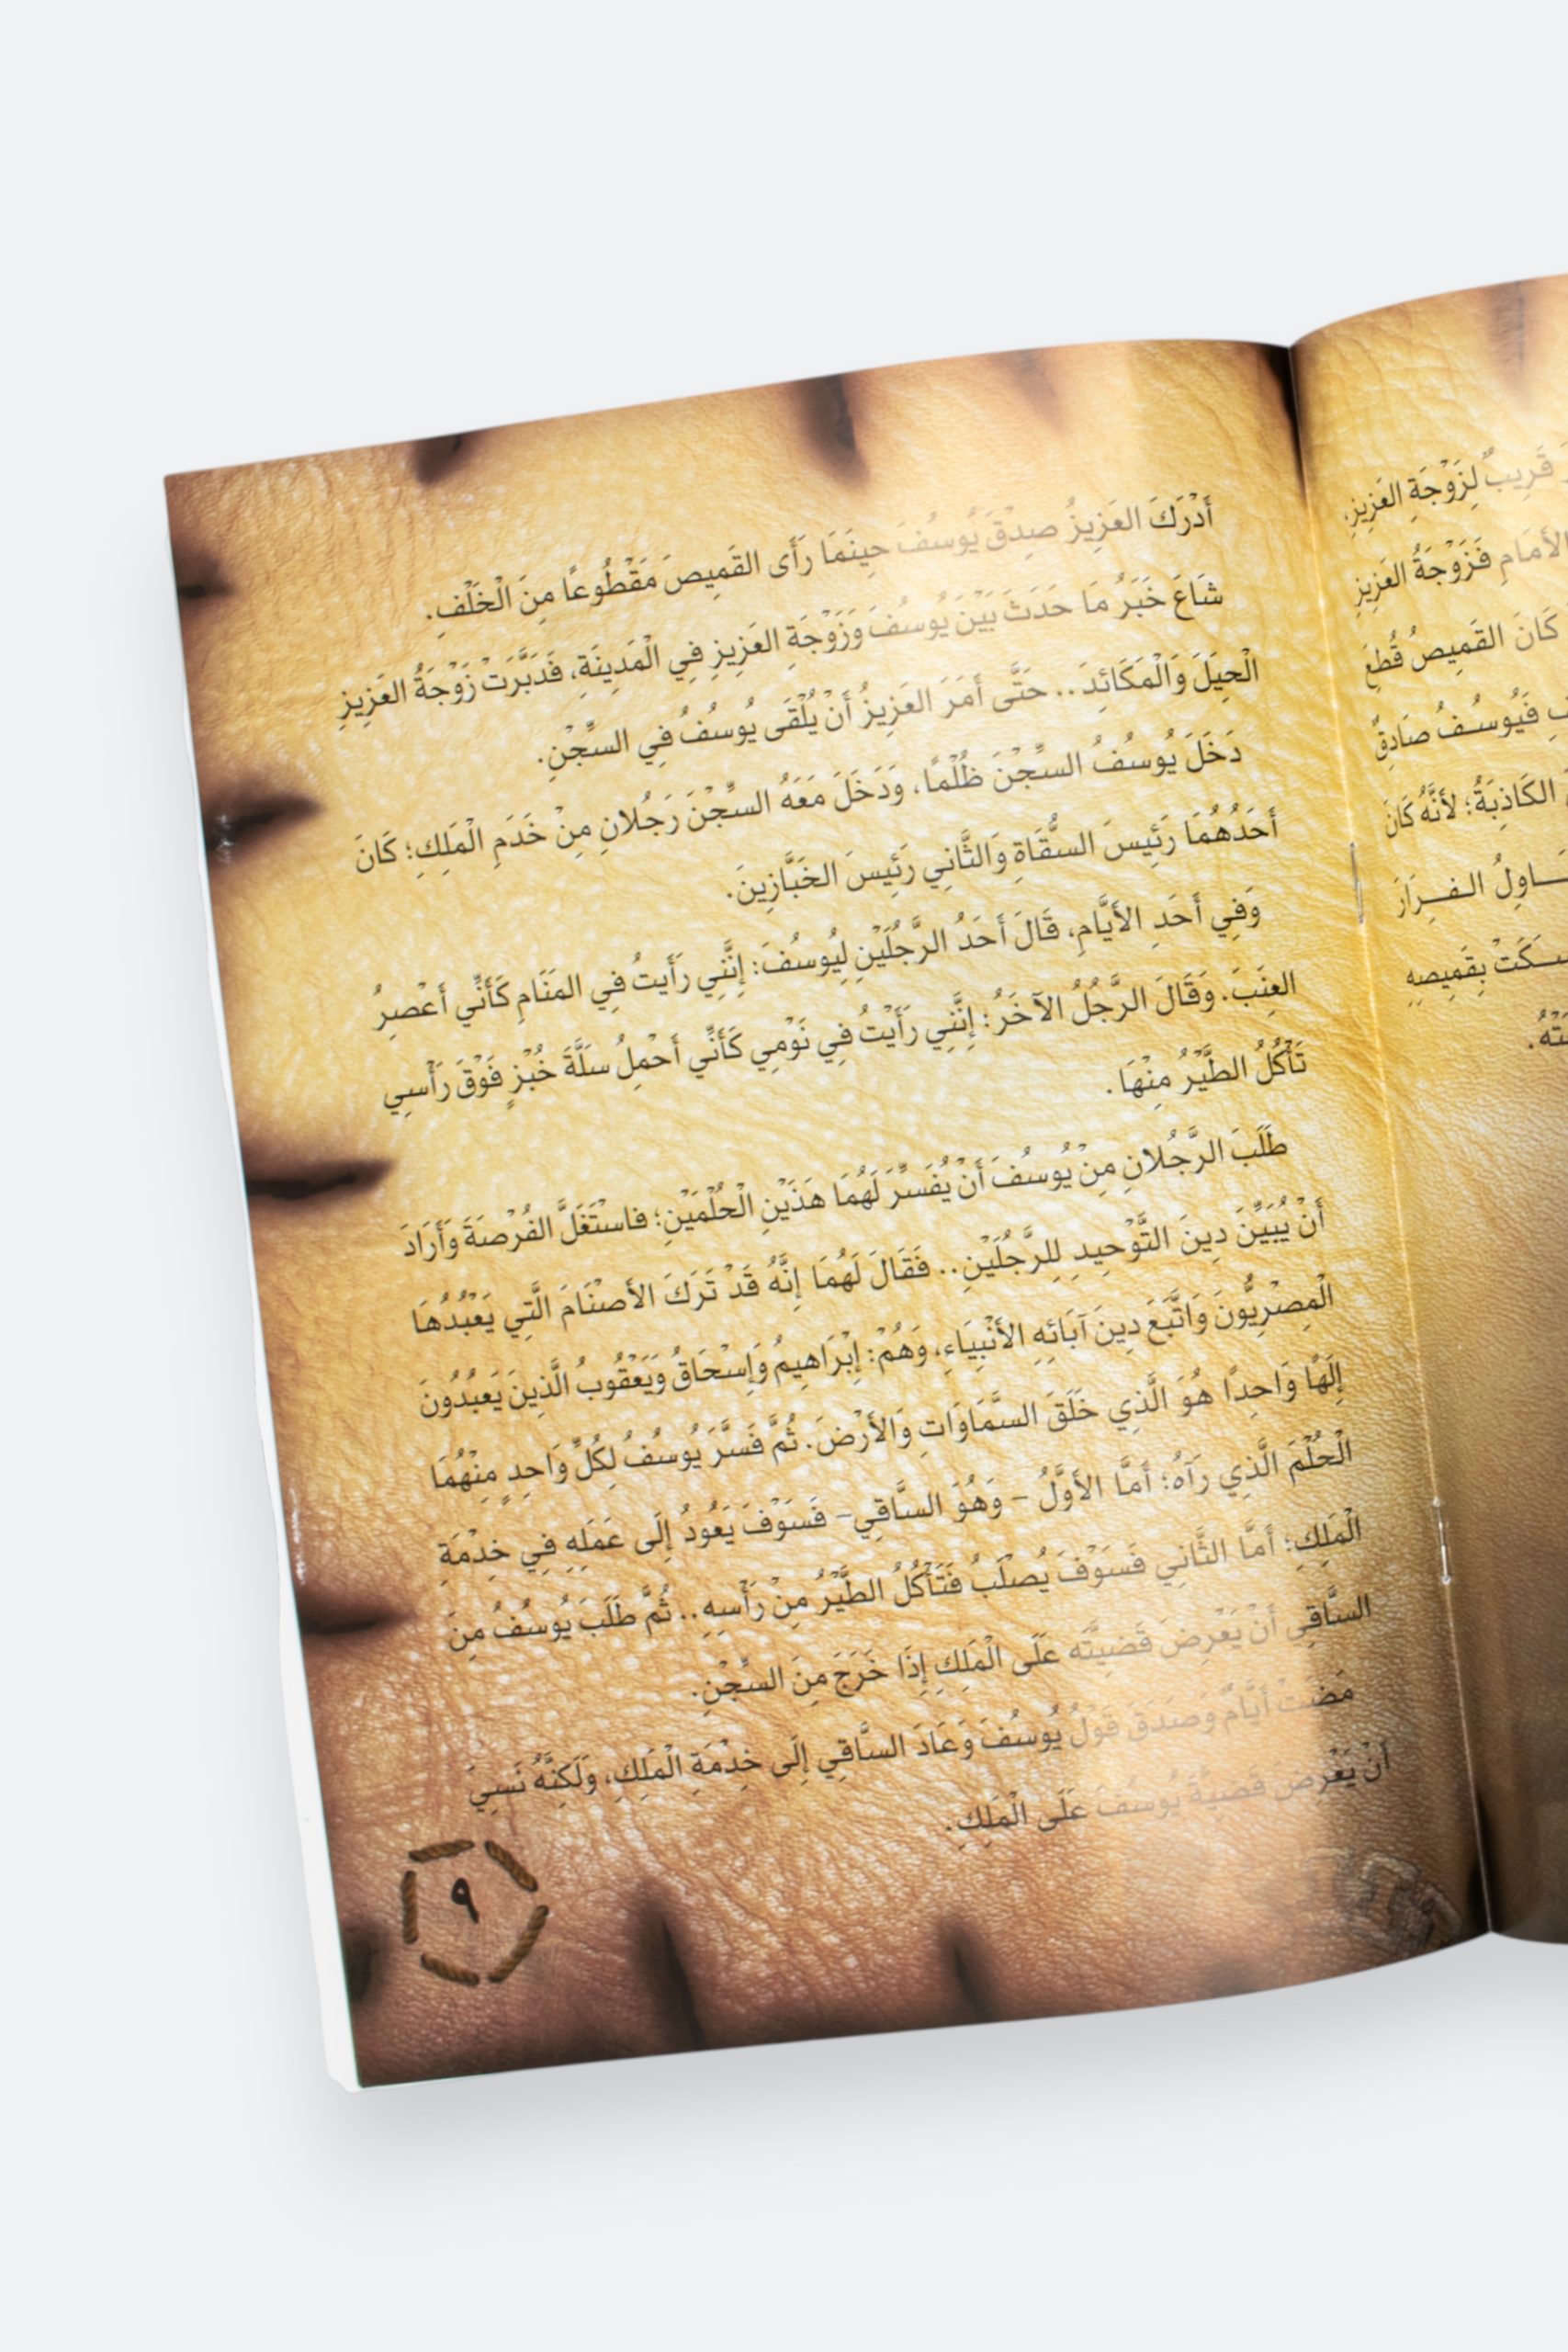 قَرِيبٌ لِزَوْجَةِ العَزِيزِ،
الأَمَامِ فَزَوْجَةُ العَزِيزِ
كَانَ القَمِيصُ قُطِعَ
فَيُوسُفُ صَادِقٌ
الكَاذِبَةُ؛ لأَنَّهُ كَانَ
الـفـِـرَارَ
بِقَمِيصِهِ
أَدْرَكَ العَزِيزُ صِدْقَ يُوسُفَ حِينَمَا رَأَى القَمِيصَ مَقْطُوعًا مِنَ الْخَلْفِ.
شَاعَ خَبَرُ مَا حَدَثَ بَيْنَ يُوسُفَ وَزَوْجَةِ العَزِيزِ فِي الْمَدِينَةِ، فَدَبَّرَتْ زَوْجَةُ العَزِيزِ
الْحِيَلَ وَالْمَكَائِدَ.. حَتَّى أَمَرَ العَزِيزُ أَنْ يُلْقَى يُوسُفُ فِي السِّجْنِ.
دَخَلَ يُوسُفُ السِّجْنَ ظُلْمًا، وَدَخَلَ مَعَهُ السِّجْنَ رَجُلانِ مِنْ خَدَمِ الْمَلِكِ؛ كَانَ
أَحَدُهُمَا رَئِيسَ السُّقَاةِ وَالثَّانِي رَئِيسَ الخَبَّازِينَ.
وَفِي أَحَدِ الأَيَّامِ، قَالَ أَحَدُ الرَّجُلَيْنِ لِيُوسُفَ: إِنَّنِي رَأَيتُ فِي المَنَامِ كَأَنِّي أَعْصِرُ
العِنَبَ. وَقَالَ الرَّجُلُ الآخَرُ: إِنَّنِي رَأَيْتُ فِي نَوْمِي كَأَنِّي أَحْمِلُ سَلَّةَ خُبْزٍ فَوْقَ رَأْسِي
تَأْكُلُ الطَّيْرُ مِنْهَا.
طَلَبَ الرَّجُلانِ مِنْ يُوسُفَ أَنْ يُفَسِّرَ لَهُمَا هَذَيْنِ الْحُلْمَيْنِ؛ فاسْتَغَلَّ الفُرْصَةَ وَأَرَادَ
أَنْ يُبَيِّنَ دِينَ التَّوْحِيدِ لِلرَّجُلَيْنِ.. فَقَالَ لَهُمَا إِنَّهُ قَدْ تَرَكَ الأَصْنَامَ الَّتِي يَعْبُدُهَا
الْمِصْرِيُّونَ وَاتَّبَعَ دِينَ آبَائِهِ الأَنْبِيَاءِ، وَهُمْ: إِبْرَاهِيمُ وَإِسْحَاقُ وَيَعْقُوبُ الَّذِينَ يَعبُدُونَ
إِلَهًا وَاحِدًا هُوَ الَّذِي خَلَقَ السَّمَاوَاتِ وَالأَرْضَ. ثُمَّ فَسَّرَ يُوسُفُ لِكُلِّ وَاحِدٍ مِنْهُمَا
الْحُلْمَ الَّذِي رَآهُ؛ أَمَّا الأَوَّلُ – وَهُوَ السَّاقِي– فَسَوْفَ يَعُودُ إِلَى عَمَلِهِ فِي خِدْمَةِ
الْمَلِكِ؛ أَمَّا الثَّانِي فَسَوْفَ يُصْلَبُ فَتَأْكُلُ الطَّيْرُ مِنْ رَأْسِهِ.. ثُمَّ طَلَبَ يُوسُفُ مِنَ
السَّاقِي أَنْ يَعْرِضَ قَضِيَّتَه عَلَى الْمَلِكِ إِذَا خَرَجَ مِنَ السِّجْنِ.
مَضَتْ أَيَّامٌ وَصَدَقَ قَوْلُ يُوسُفَ وَعَادَ السَّاقِي إِلَى خِدْمَةِ الْمَلِكِ، وَلَكِنَّهُ نَسِيَ
أَنْ يَعْرِضَ قَضِيَّةَ يُوسُفَ عَلَى الْمَلِكِ.
٩